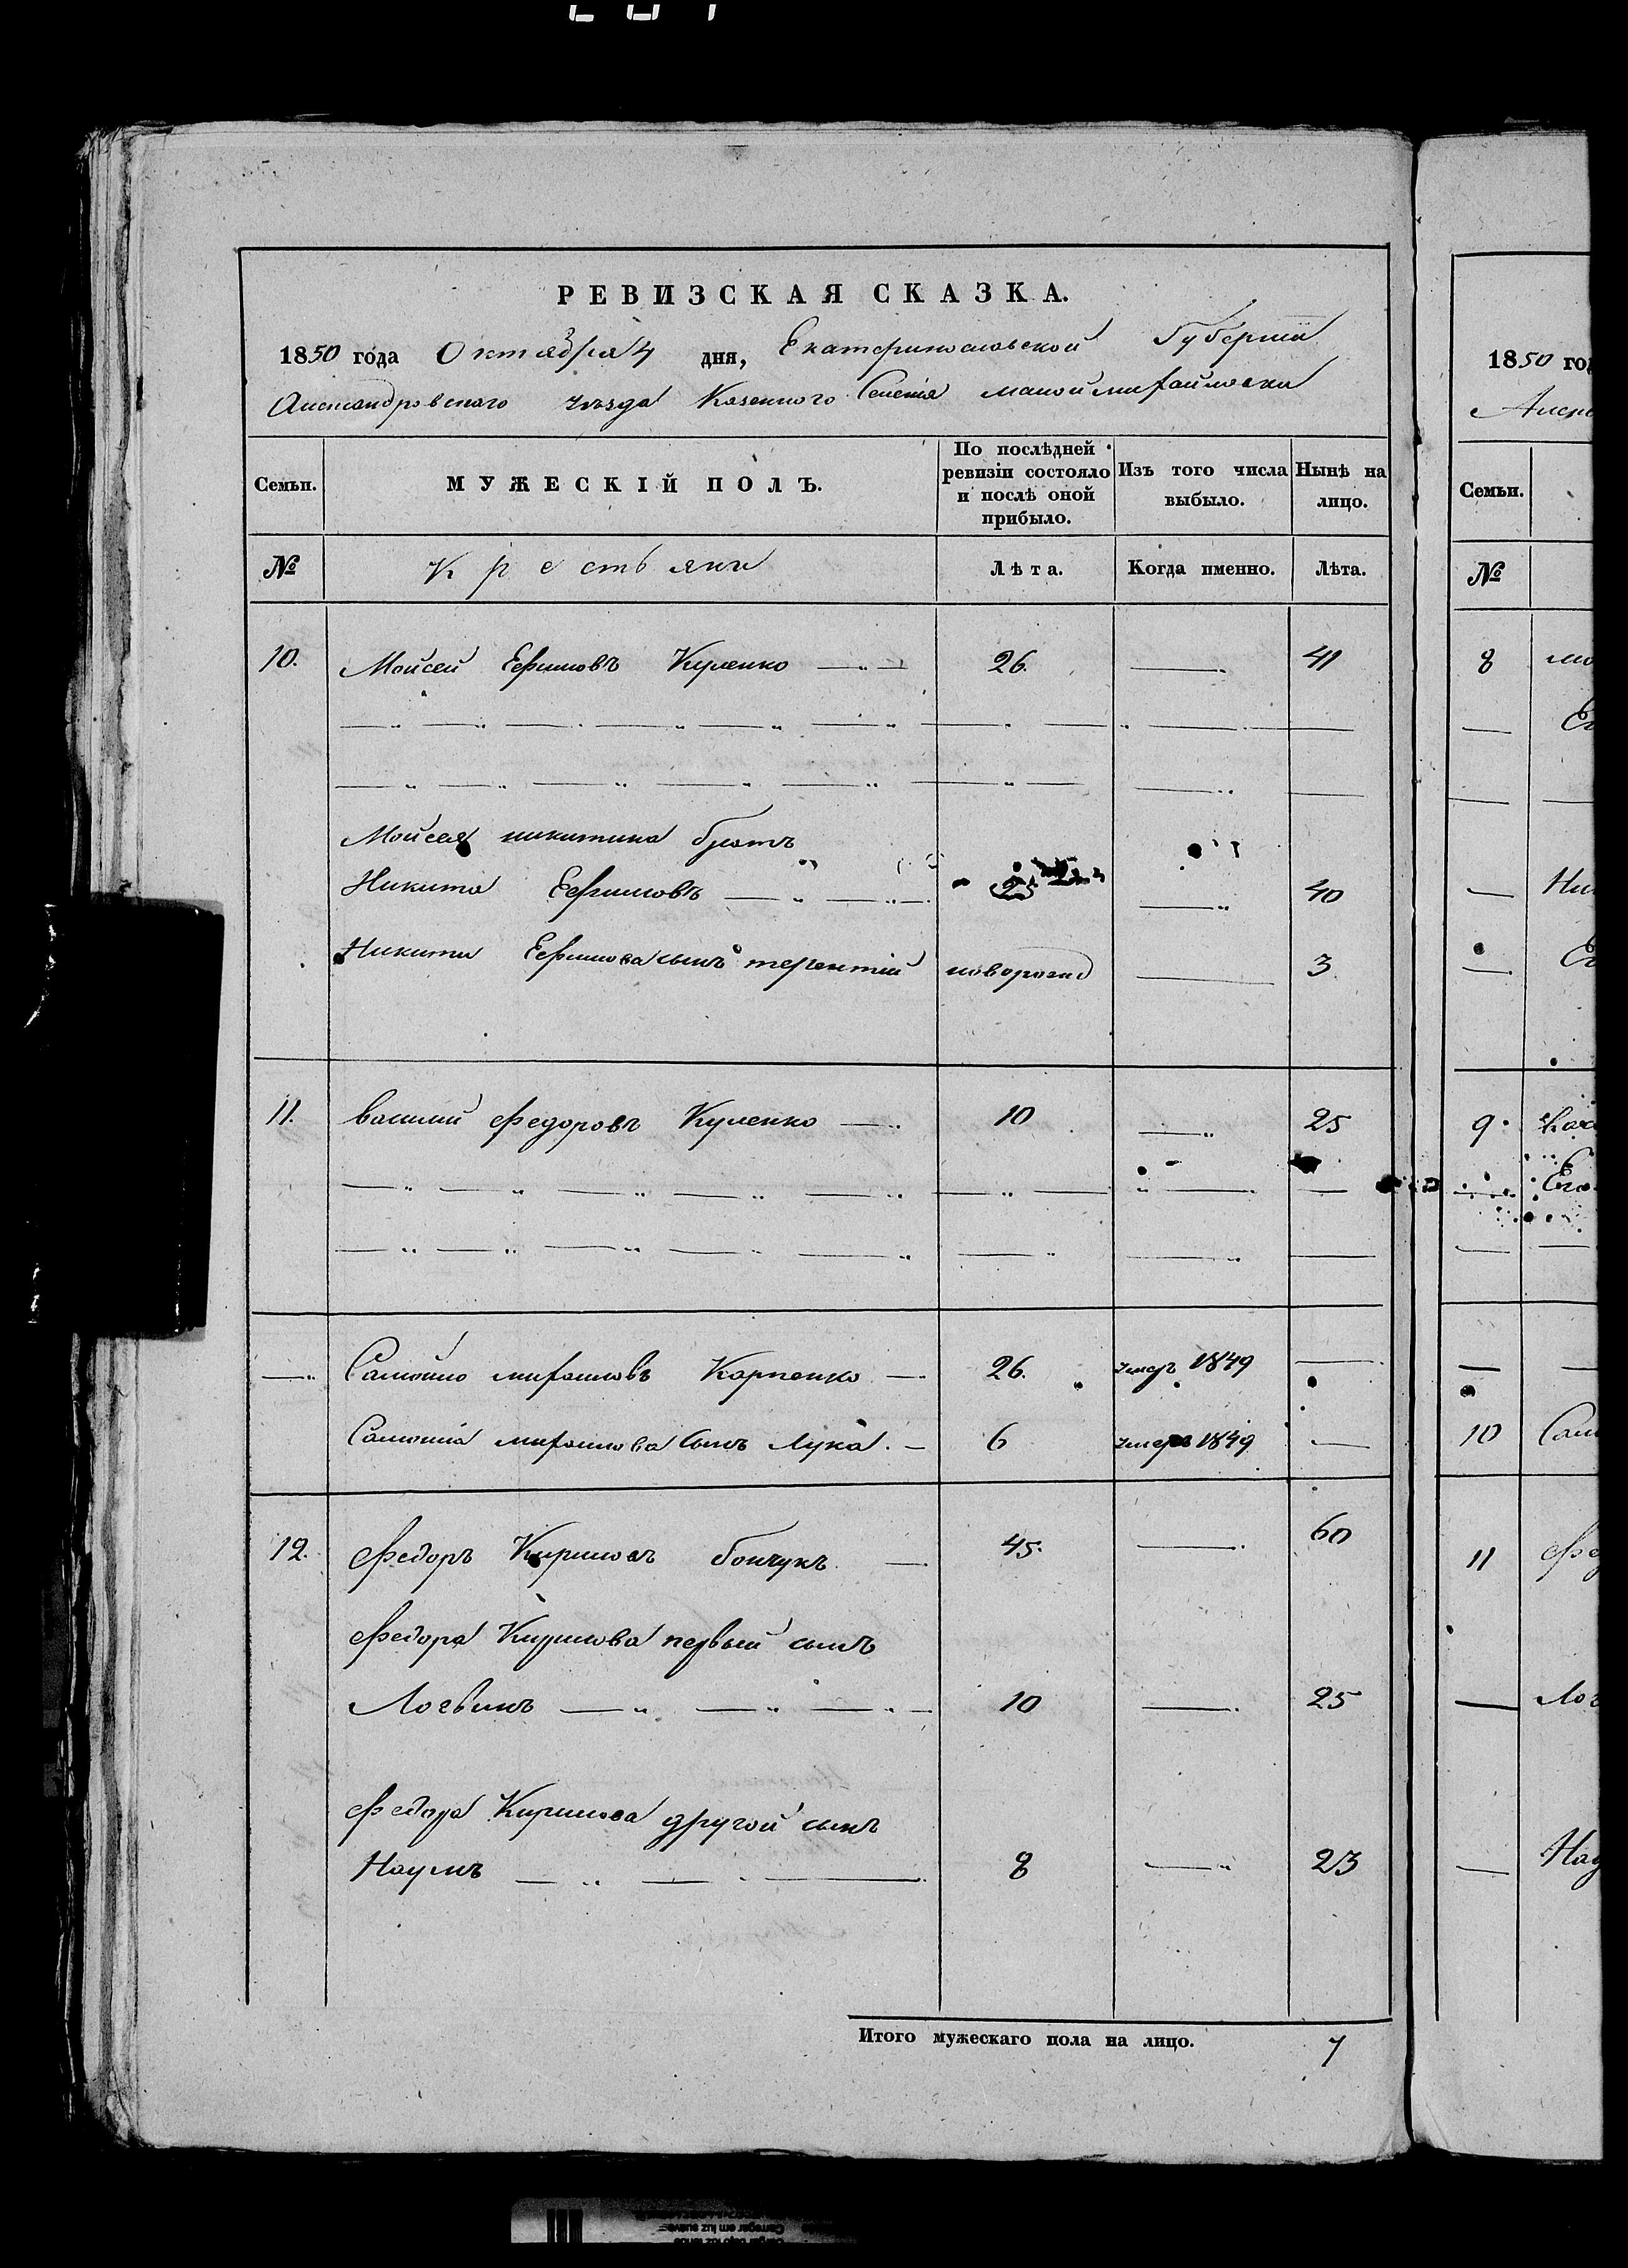 РЕВИЗСКАЯ СКАЗКА.
1850 года Октября 4 дня, Екатеринославской Губернии
Александровскаго уъзда Казенного Селенія малой михайловки
Семьи. МУЖЕСКІЙ ПОЛЪ. По послѣдней ревизіи состояло и послѣ оной прибыло. Изъ того числа выбыло. Нынѣ на лицо.
№ Крестьяни Лѣта. Когда именно. Лѣта.
10. Мойсей Ефимовъ Куленко 26. 41
Мойсея никитина братъ
Никита Ефимовъ 25 40
Никити Ефимова сынъ терентій новорожд 3
11. василий Федоровъ Куленко 10 25
Самойло михайловъ Карпенко 26. умеръ 1849
Самойла михайлова сынъ Лука. 6 умеръ 1849
12. Федоръ Кириловъ бончукъ 45. 60
Федора Кирилова первый сынъ
Логвинъ 10 25
Федора Кирилова другой сынъ
Наумъ 8 23
Итого мужескаго пола на лицо. 7
1850 год
Семьи.
№
8
Ни
9.
10 Сам
11 Фед
Лог
Нау